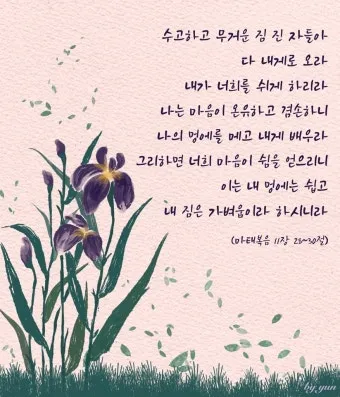 수고하고 무거운 짐 진 자들아
다 내게로 오라
내가 너희를 쉬게 하리라
나는 마음이 온유하고 겸손하니
나의 멍에를 메고 내게 배우라
그리하면 너희 마음이 쉼을 얻으리니
이는 내 멍에는 쉽고
내 짐은 가벼움이라 하시니라
(마태복음 11장 28~30절)
by yun